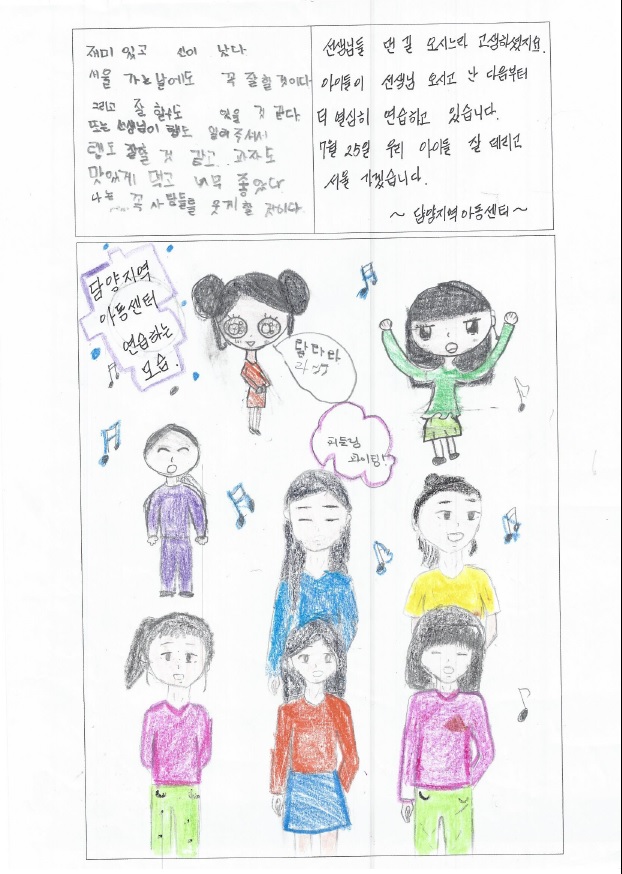 재미 있고 신이 났다
서울 가는날에도 꼭 잘할것이다
그리고 잘 할수도 있을 것 같다
또는 선생님이 랩도 알려주셔서
랩도 잘할 것 같고 과자도
맛있게 먹고 너무 좋았다
나는 꼭 사람들을 웃게할 것이다.
선생님들 먼 길 오시느라 고생하셨지요.
아이들이 선생님 오시고 난 다음부터
더 열심히 연습하고 있습니다.
7월 25일 우리 아이들 잘 데리고
서울 가겠습니다.
~ 담양지역아동센터 ~
담양지역
아동센터
연습하는
모습.
랄라라
라♬
화이팅!